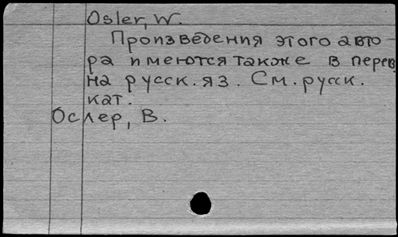 Osler, W.
Произведения этого авто-
ра имеются также в перев.
на русск. яз. См. русск.
кат.
Ослер, В.